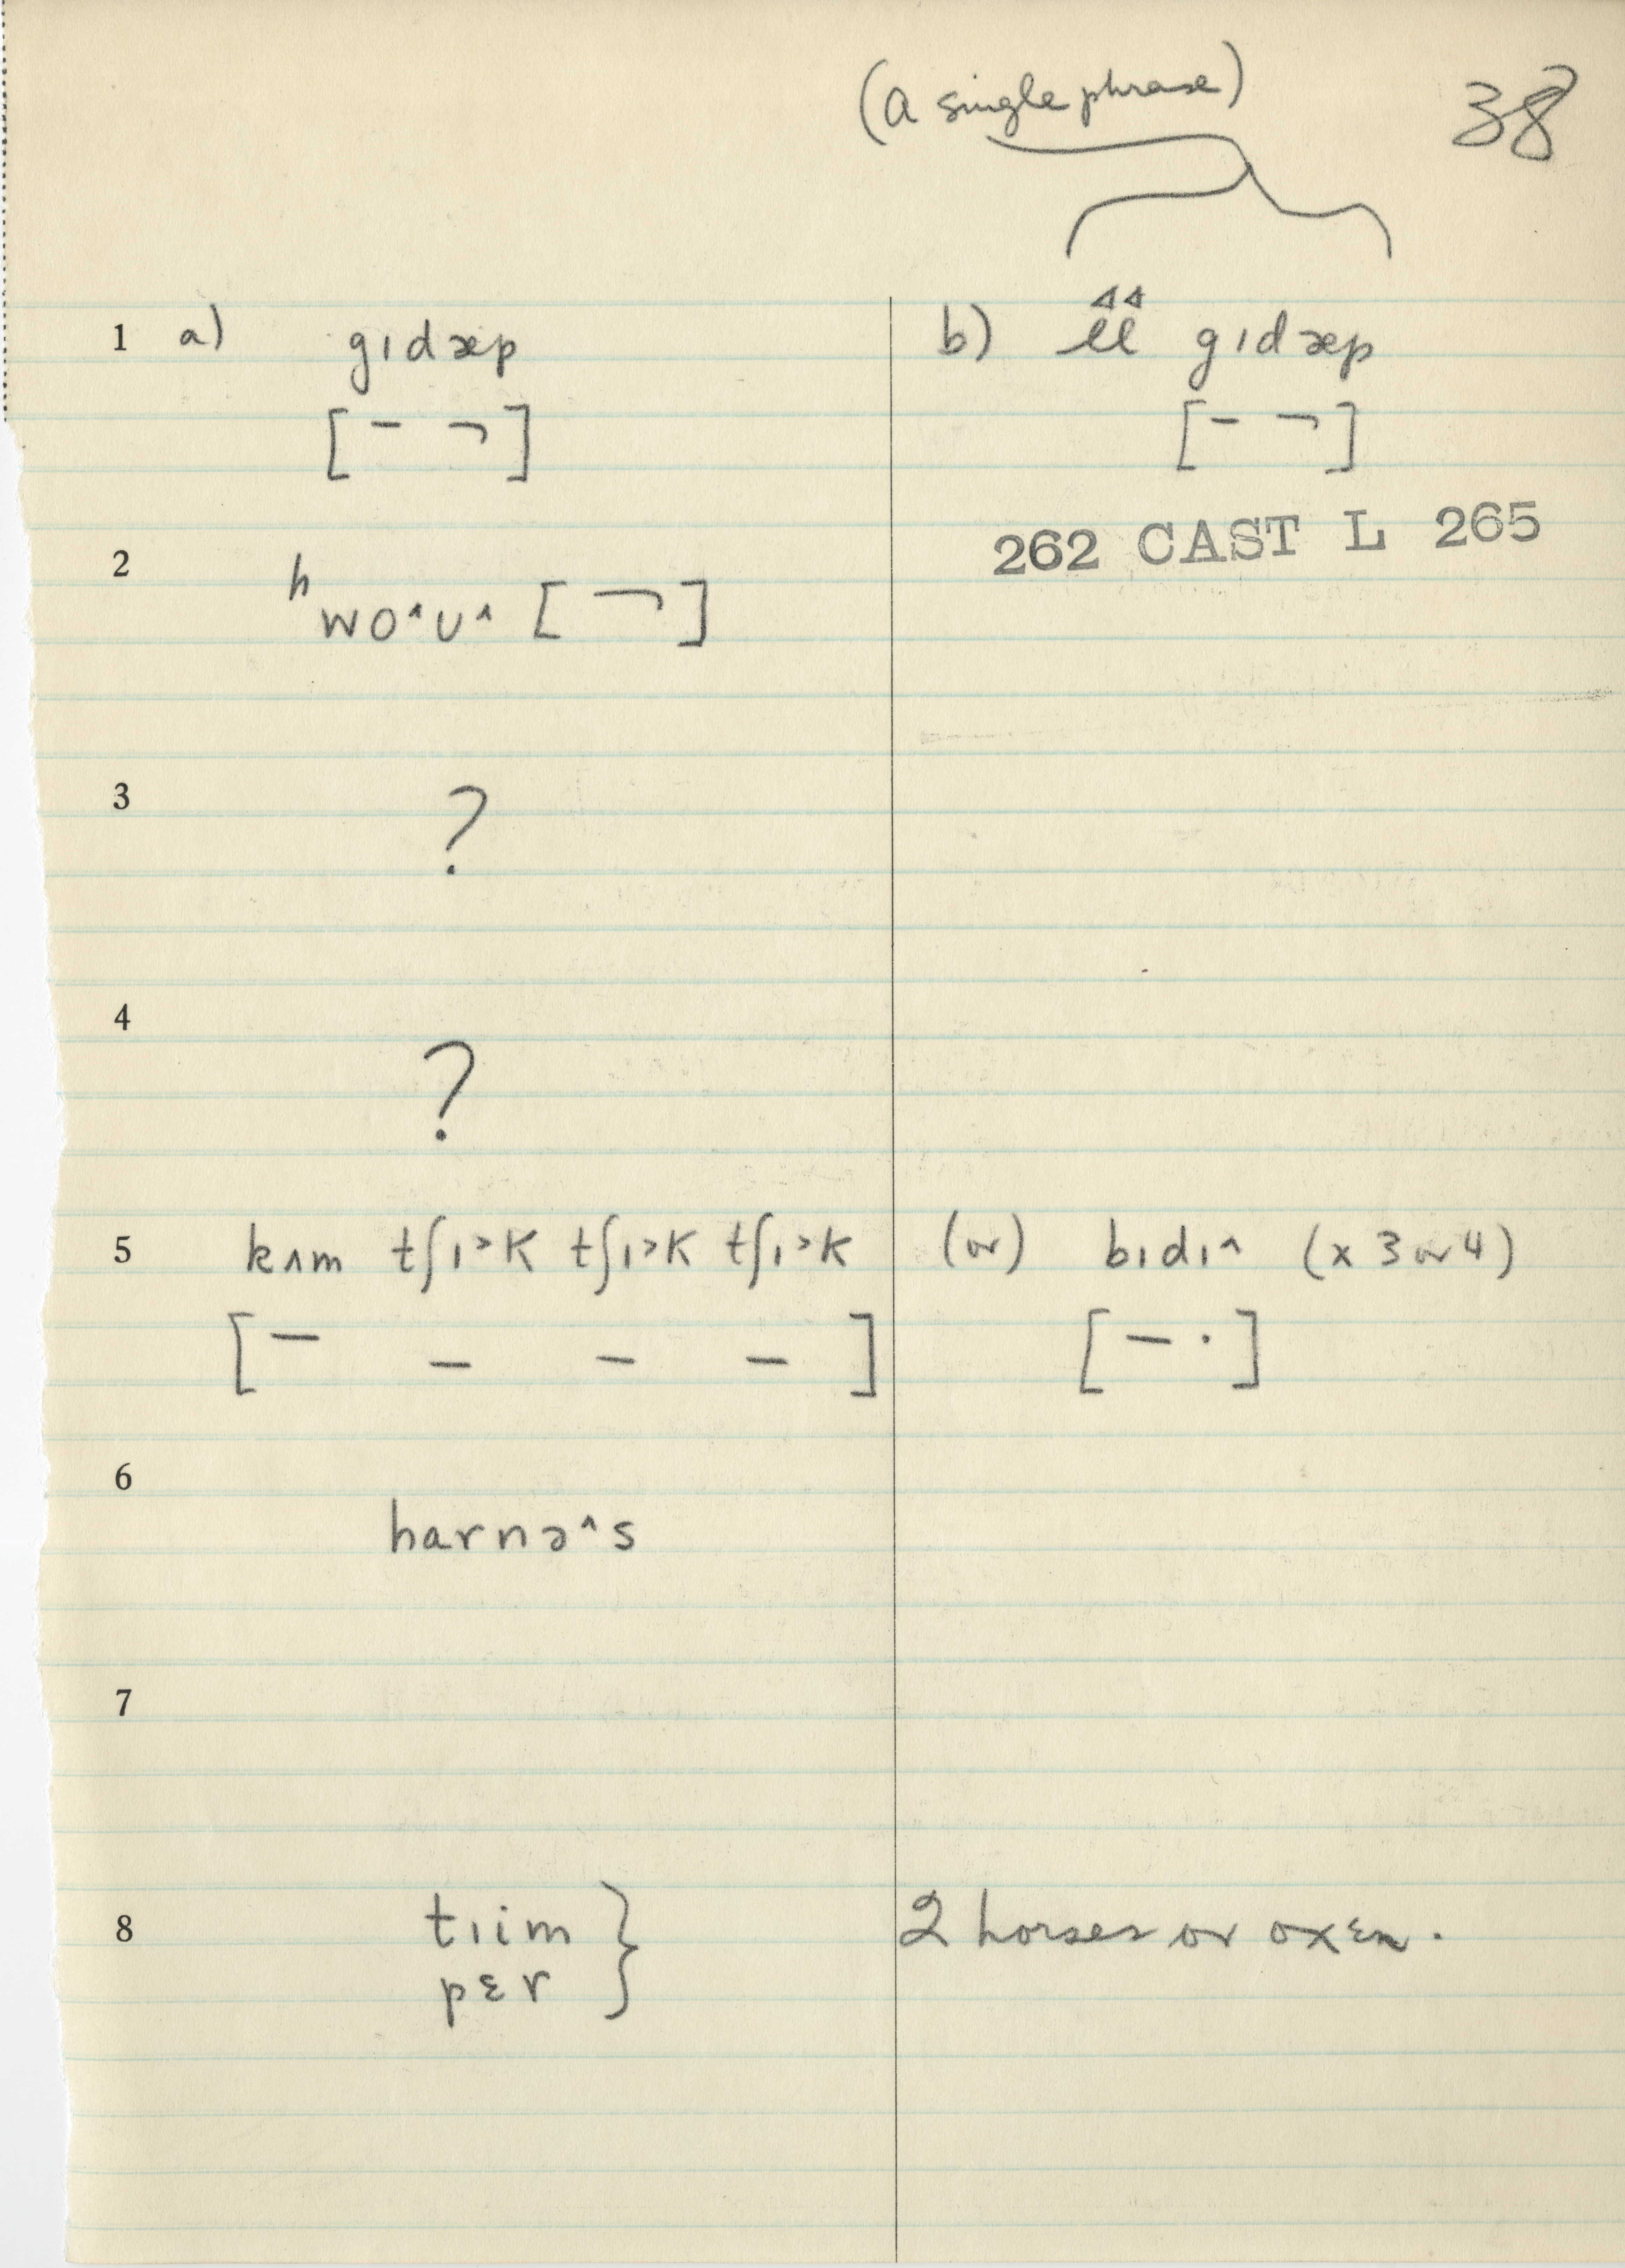 (a single phrase)
38
1 a) gɪdæp b) ʟʟ gɪdæp
[– ¬] [– ¬]
262 CAST L 265
2 ʰwo˄ʊ˄ [¬]
3 ?
4 ?
5 kʌm tʃɪ˃k tʃɪ˃k tʃɪ˃k (or) bɪdɪ˄ (x 3 or 4)
[– – – –] [– ·]
6 harnə˄s
7
8 tɪim } 2 horses or oxen.
pɛr